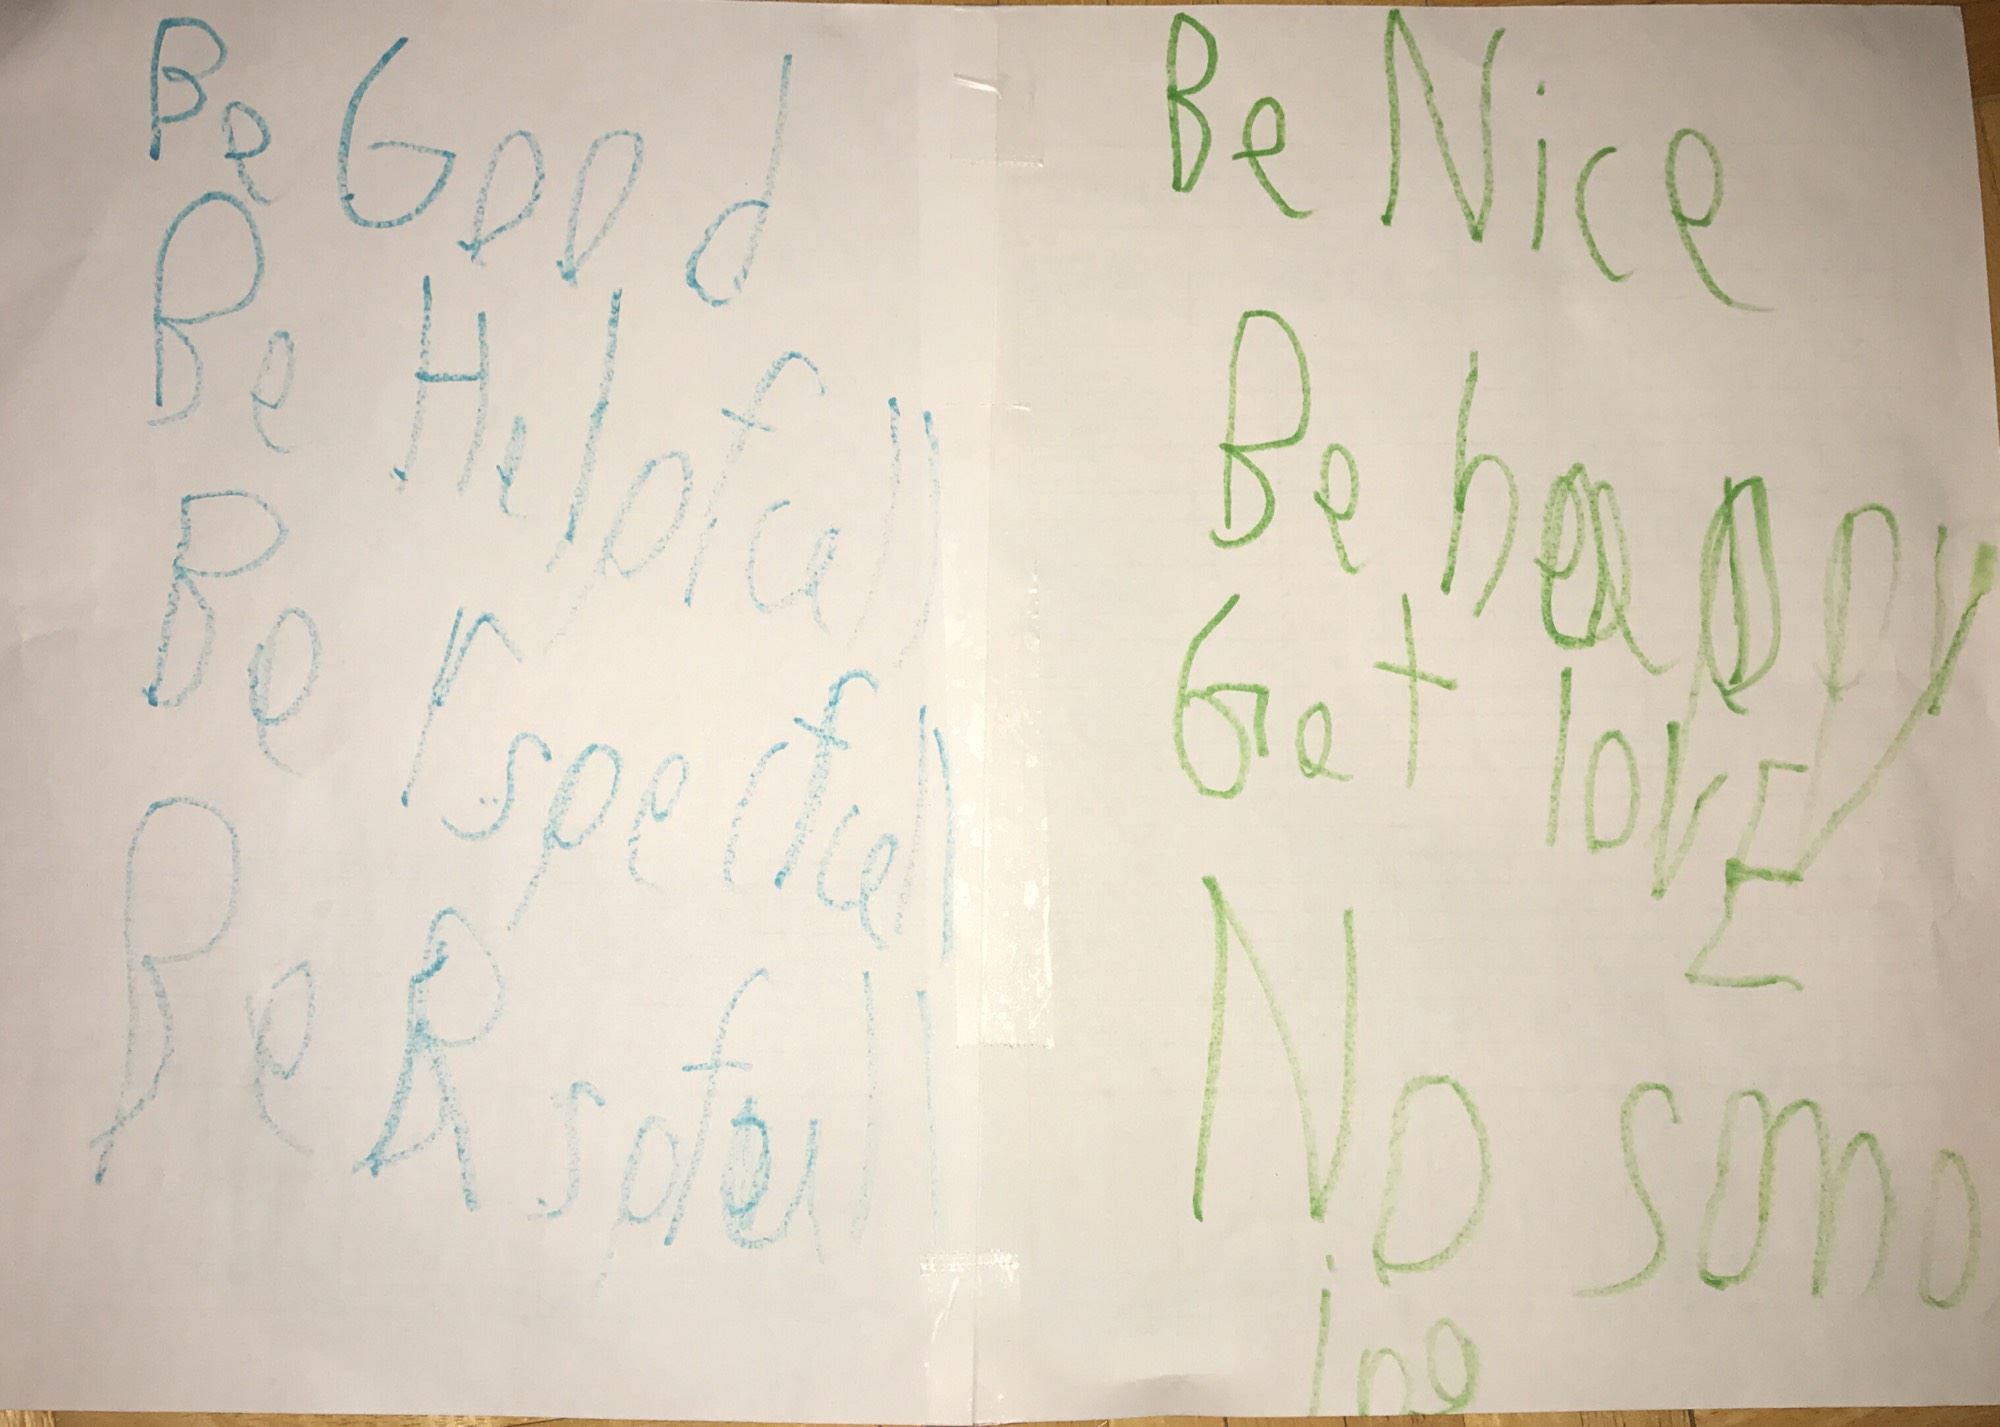 Be Good
Be Helpfcell
Be rspecfcell
Be Rspfoull
Be Nice
Be happy
Get lovE
No smo
ing